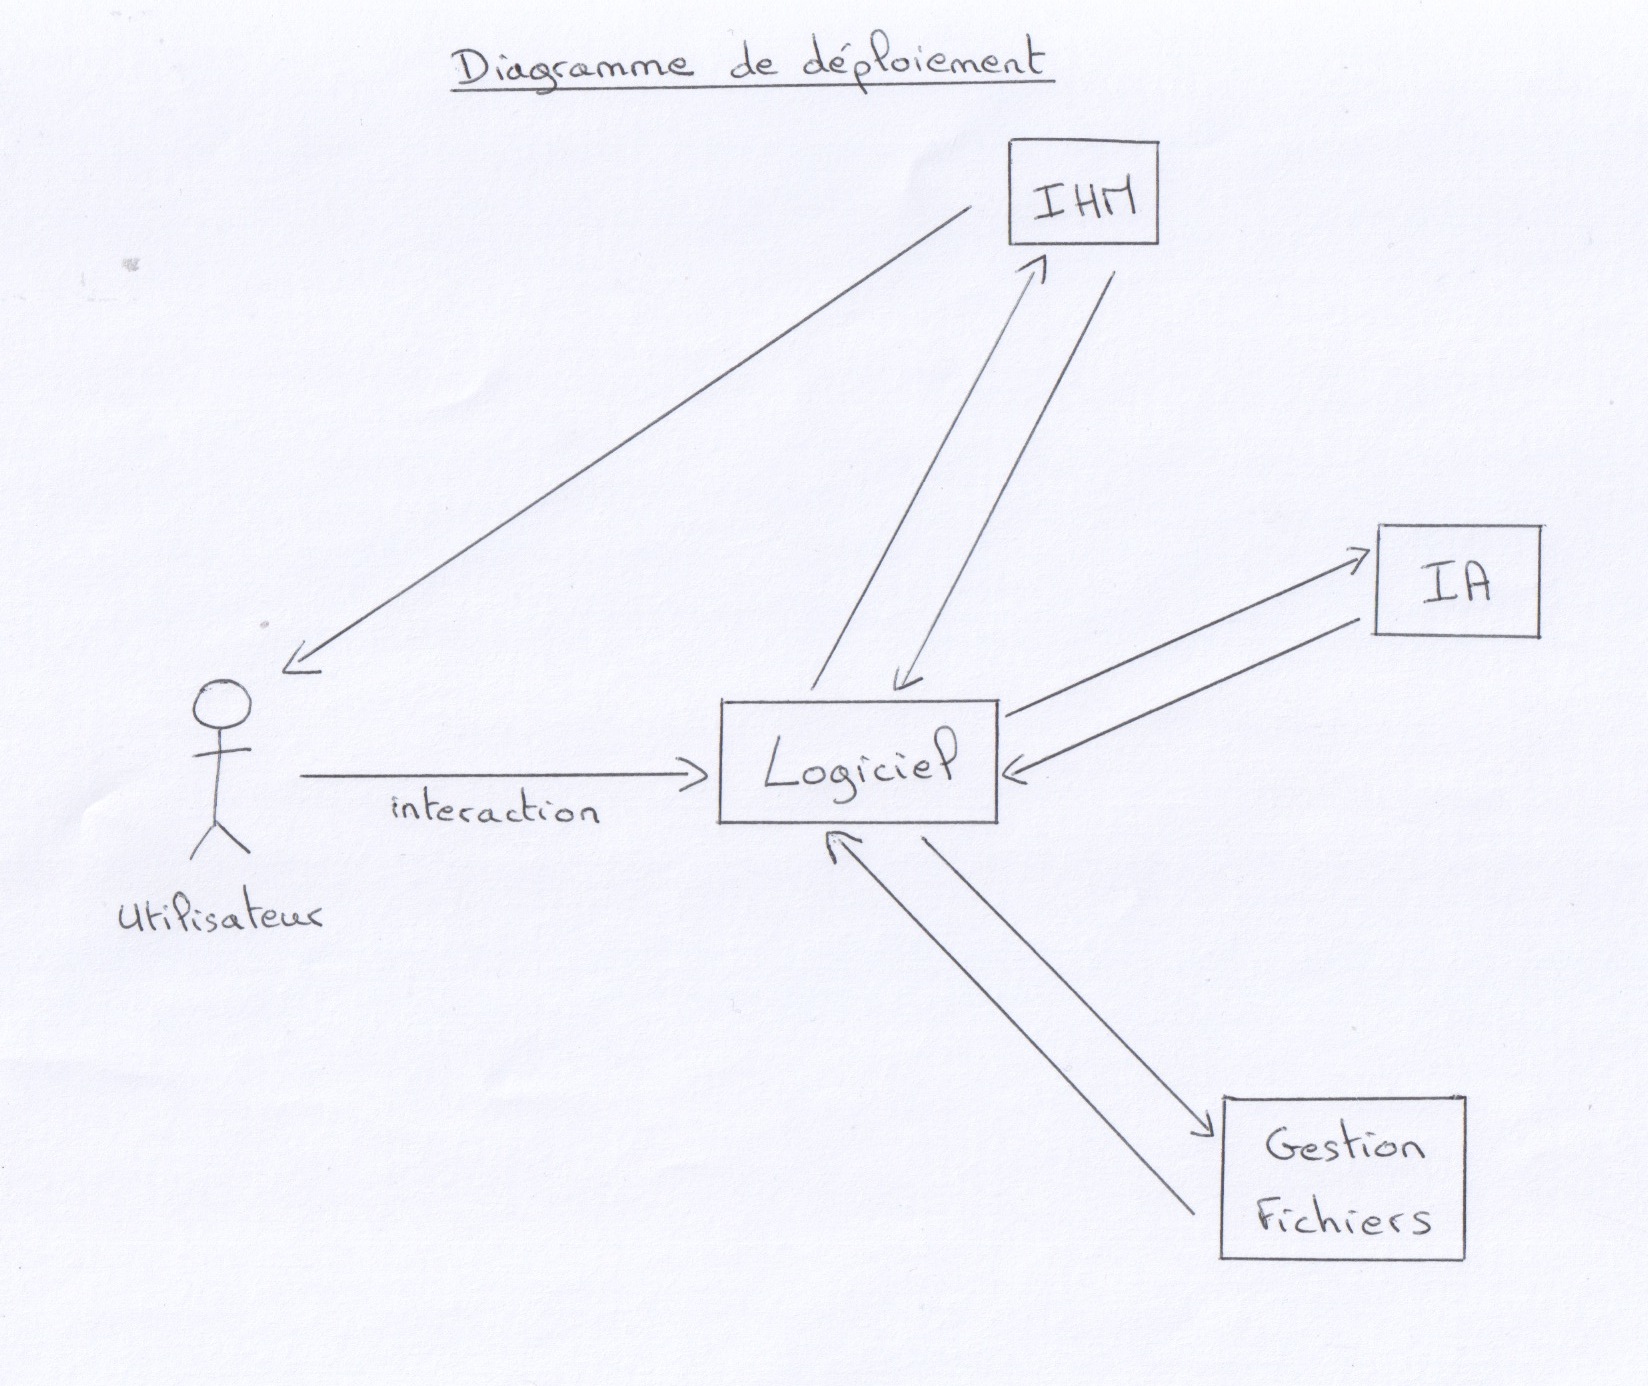 Diagramme de déploiement
IHM
IA
Logiciel
interaction
Utilisateur
Gestion
Fichiers